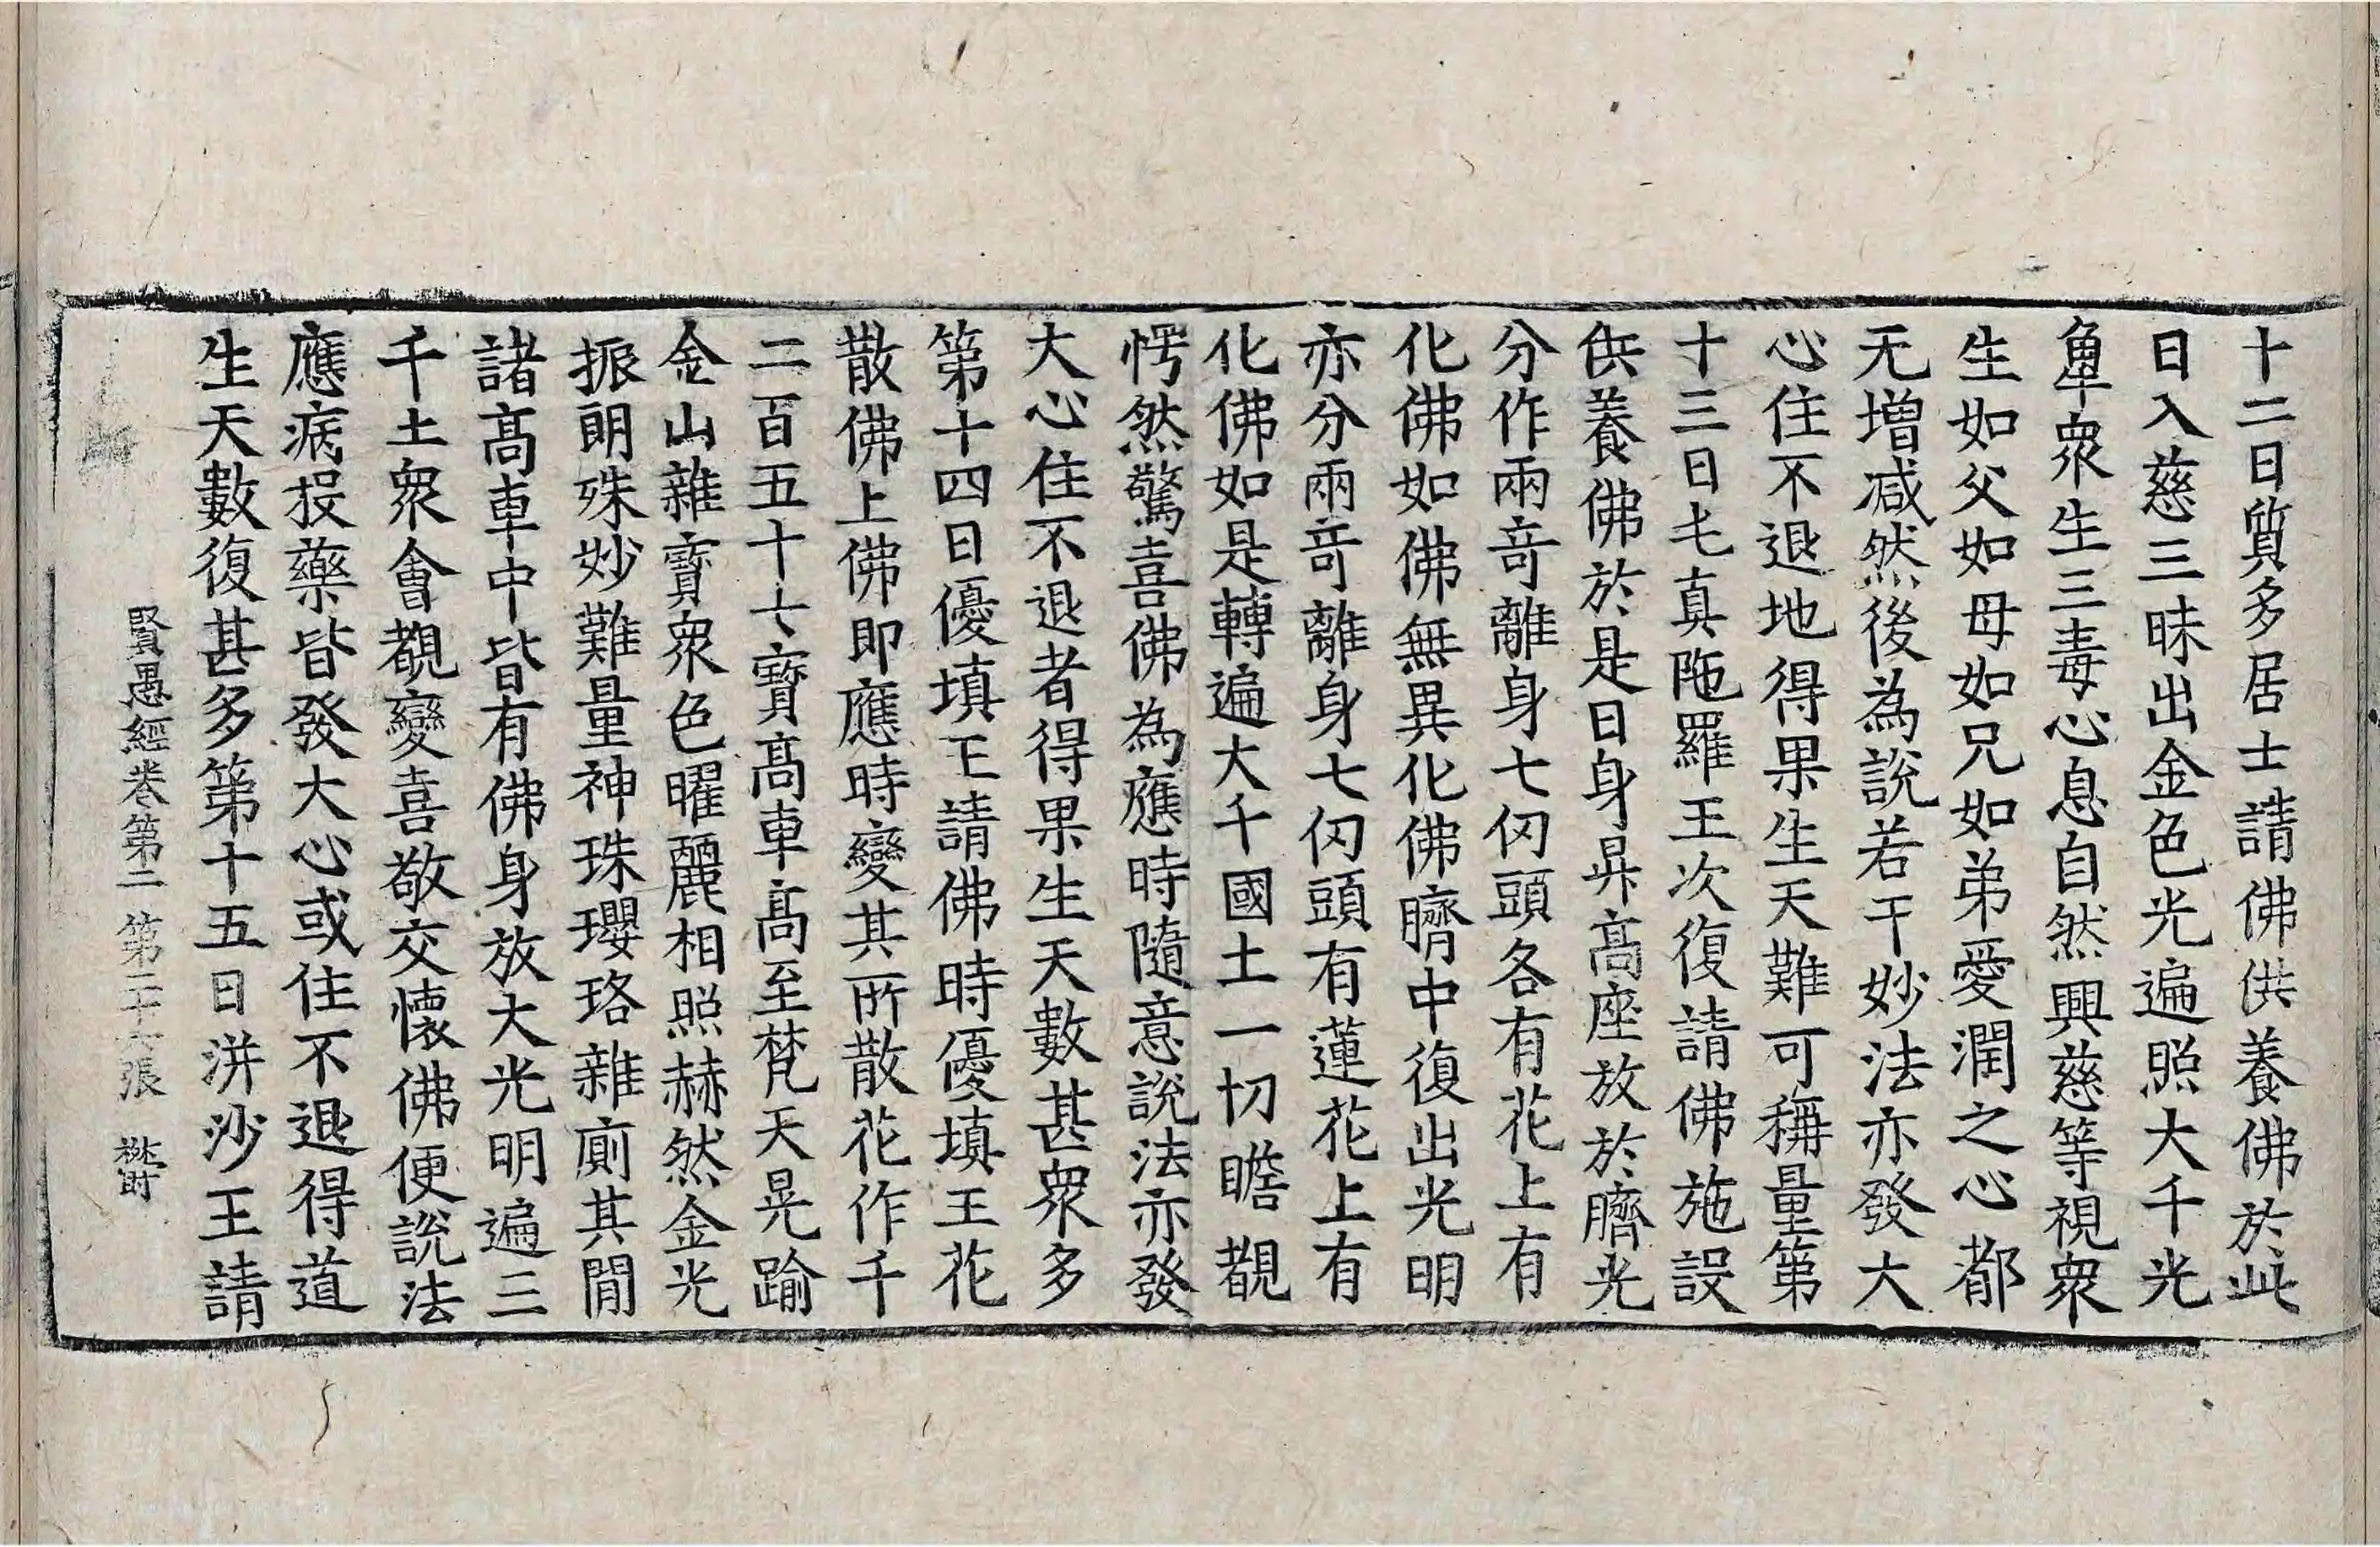 十二日質多居士請佛供養佛於此
日入慈三昧出金色光遍照大千光
觸衆生三毒心息自然興慈等視衆
生如父如母如兄如弟愛潤之心都
无增减然後為說若干妙法亦發大
心住不退地得果生天難可稱量第
十三日屯真陁羅王次復請佛施設
供養佛於是日身昇高座放於臍光
分作兩奇離身七仞頭各有花上有
化佛如佛無異化佛臍中復出光明
亦分兩奇離身七仞頭有蓮花上有
化佛如是轉遍大千國土一切瞻覩
愕然驚喜佛為應時隨意說法亦發
大心住不退者得果生天數甚衆多
第十四日優填王請佛時優填王花
散佛上佛即應時變其所散花作千
二百五十七寶髙車髙至梵天晃踰
金山雜寶衆色曜麗相照赫然金光
振朗殊妙難量神珠瓔珞雜廁其間
諸髙車中皆有佛身放大光明遍三
千土衆會覩變喜敬交懷佛便說法
應病投藥皆發大心或住不退得道
生天數復甚多第十五日洴沙王請
賢愚經卷第二 第二十六張